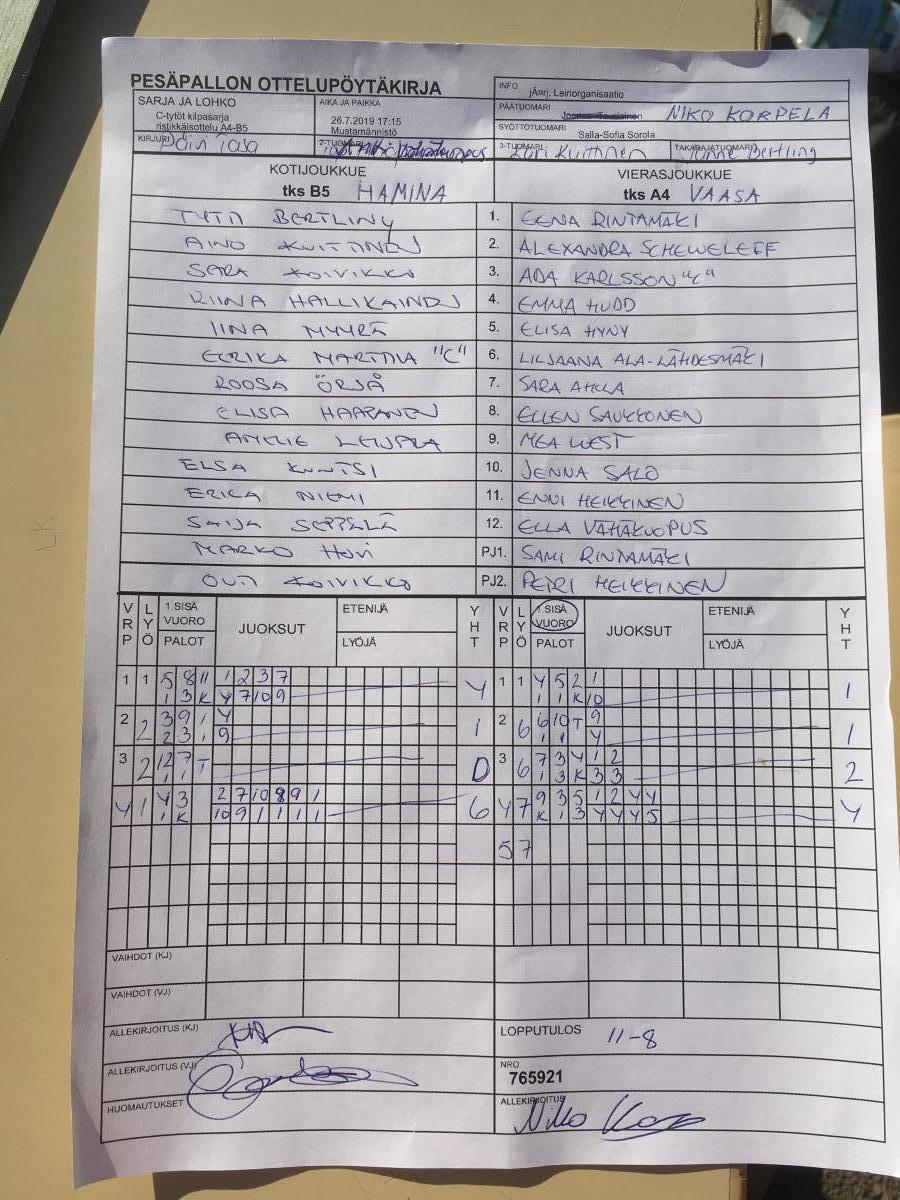 PESÄPALLON OTTELUPÖYTÄKIRJA
INFO jÃ¤rj. Leiriorganisaatio
SARJA JA LOHKO
C-tytöt kilpasarja
ristikkäisottelu A4-B5
AIKA JA PAIKKA
26.7.2019 17:15
Mustamännistö
PÄÄTUOMARI NIKO KORPELA
SYÖTTÖTUOMARI Salla-Sofia Sorola
KIRJURI
2-TUOMARI
3-TUOMARI Kuittinen
TAKARAJATUOMARI Bertling
KOTIJOUKKUE
tks B5 HAMINA
VIERASJOUKKUE
tks A4 VAASA
BERTLING 1. EENA RINTAMÄKI
AINO KUITTINEN 2. ALEXANDRA SCHEWELEFF
SARA KOIVIKKO 3. ADA KARLSSON "C"
RIINA HALLIKAINEN 4. EMMA HUDD
IINA MYYRÄ 5. ELISA HYNY
EERIKA MARTTILA "C" 6. LILJAANA ALA-LÄHDESMÄKI
ROOSA ÖRJÅ 7. SARA AHOLA
ELISA HAAPANEN 8. ELLEN SAUKKONEN
AMELIE LEUPALA 9. MEA WEST
ELSA KUNTSI 10. JENNA SALO
ERICA NIEMI 11. ENNI HEIKKINEN
SAIJA SEPPÄLÄ 12. ELLA VÄHÄKUOPUS
MARKO HOVI PJ1. SAMI RINTAMÄKI
OUTI KOIVIKKO PJ2. PETRI HEIKKINEN
VRP LYÖ 1.SISÄ VUORO PALOT JUOKSUT ETENIJÄ LYÖJÄ YHT
VRP LYÖ 1.SISÄ VUORO PALOT JUOKSUT ETENIJÄ LYÖJÄ YHT
1 1 5 8 11 1 2 3 7 4 1 1 4 5 2 1 1
1 3 K 4 7 10 9 1 1 K 10
2 2 3 9 1 4 1 2 6 6 10 T 9 1
2 3 1 9 1 1 4
3 2 12 7 T 0 3 6 7 3 4 1 2 2
1 1 1 3 K 3 3
4 1 4 3 2 7 10 8 9 1 6 4 7 9 3 5 1 2 4 4 4
1 K 10 9 1 1 1 1 K 1 3 4 4 4 5
5 7
VAIHDOT (KJ)
VAIHDOT (VJ)
ALLEKIRJOITUS (KJ)
LOPPUTULOS 11-8
ALLEKIRJOITUS (VJ)
NRO
765921
HUOMAUTUKSET
ALLEKIRJOITUS Niko